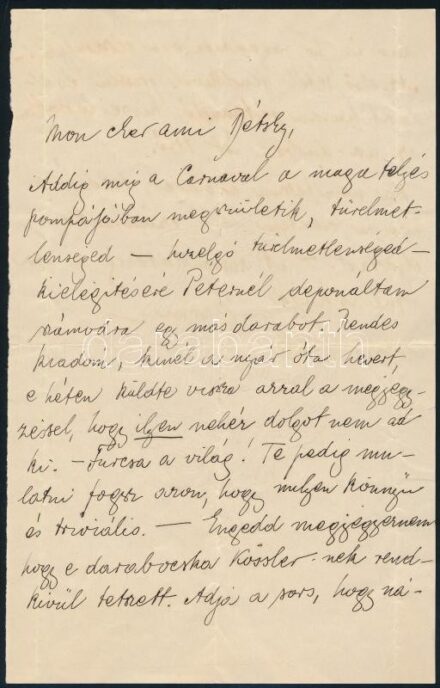 Mon cher ami Rétsky,
Addig mig a Carnaval a maga teljes
pompájában megszületik, türelmet-
lenséged – hizelgő türelmetlenséged –
kielégitésére Péternél deponáltam
számodra egy más darabot. Rendes
kiadóm, kinél a nyár óta hevert,
e héten küldte vissza azzal a megjegy-
zéssel, hogy ilyen nehéz dolgot nem ad
ki. – Furcsa a világ! Te pedig mu-
latni fogsz azon, hogy milyen könnyü
és triviális. – Engedd megjegyeznem
hogy e darabocska Kössler-nek rend-
kivül tetszett. Adja a sors, hogy ná-
darabanth.com